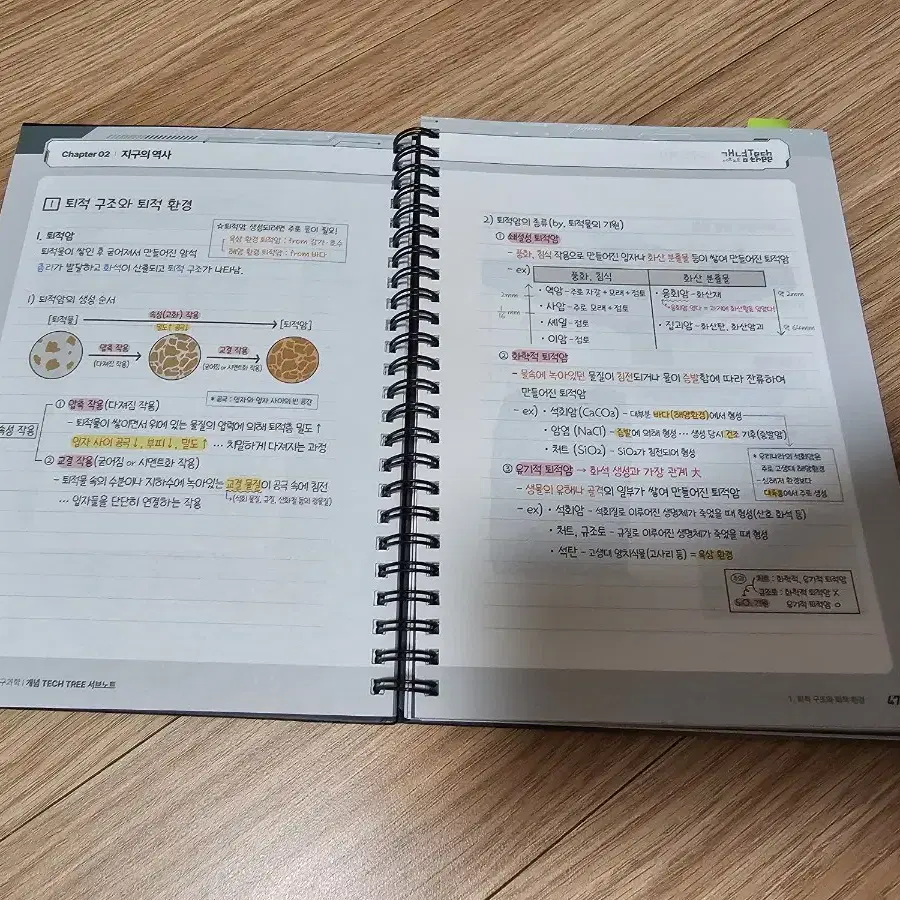 Chapter 02 | 지구의 역사
1 퇴적 구조와 퇴적 환경
☆퇴적암 생성되려면 주로 물이 필요!
육상 환경 퇴적암 : from 강가·호수
해양 환경 퇴적암 : from 바다
1. 퇴적암
퇴적물이 쌓인 후 굳어져서 만들어진 암석
층리가 발달하고 화석이 산출되고 퇴적 구조가 나타남.
1) 퇴적암의 생성 순서
[퇴적물] 속성(고화) 작용 [퇴적암]
밀도↑ 공극↓
압축 작용
(다져짐 작용)
교결 작용
(굳어짐 or 시멘트화 작용)
* 공극 : 입자와 입자 사이의 빈 공간
속성 작용
① 압축 작용(다져짐 작용)
- 퇴적물이 쌓이면서 위에 있는 물질의 압력에 의해 퇴적층 밀도 ↑
입자 사이 공극↓, 부피↓, 밀도↑ … 치밀하게 다져지는 과정
② 교결 작용(굳어짐 or 시멘트화 작용)
- 퇴적물 속의 수분이나 지하수에 녹아있는 교결 물질이 공극 속에 침전
(석회 물질, 규질, 산화철 등의 광물질)
… 입자들을 단단히 연결하는 작용
구과학 | 개념 TECH TREE 서브노트
개념Tech
TREE
2) 퇴적암의 종류(by. 퇴적물의 기원)
① 쇄설성 퇴적암
- 풍화, 침식 작용으로 만들어진 입자나 화산 분출물 등이 쌓여 만들어진 퇴적암
- ex) 풍화, 침식 화산 분출물
2mm
1/16 mm
· 역암 - 주로 자갈 + 모래 + 점토
· 사암 - 주로 모래 + 점토
· 셰일 - 점토
· 이암 - 점토
· 응회암 - 화산재
응회암 있다 = 과거에 화산활동 있었다!
· 집괴암 - 화산탄, 화산암괴
약 2mm
약 64mm
② 화학적 퇴적암
- 물속에 녹아있던 물질이 침전되거나 물이 증발함에 따라 잔류하여
만들어진 퇴적암
- ex) · 석회암(CaCO₃) - 대부분 바다(해양환경)에서 형성
· 암염 (NaCl) - 증발에 의해 형성 … 생성 당시 건조 기후(증발암)
· 처트 (SiO₂) - SiO₂가 침전되어 형성
* 우리나라의 석회암은
주로 고생대 해양환경
- 심해저 환경보다
대륙붕에서 주로 생성
③ 유기적 퇴적암 → 화석 생성과 가장 관계 大
- 생물의 유해나 골격의 일부가 쌓여 만들어진 퇴적암
- ex) · 석회암 - 석회질로 이루어진 생명체가 죽었을 때 형성(산호 화석 등)
· 처트, 규조토 - 규질로 이루어진 생명체가 죽었을 때 형성
· 석탄 - 고생대 양치식물(고사리 등) = 육상 환경
처트 : 화학적, 유기적 퇴적암
규조토 : 화학적 퇴적암 X
유기적 퇴적암 O
1. 퇴적 구조와 퇴적 환경